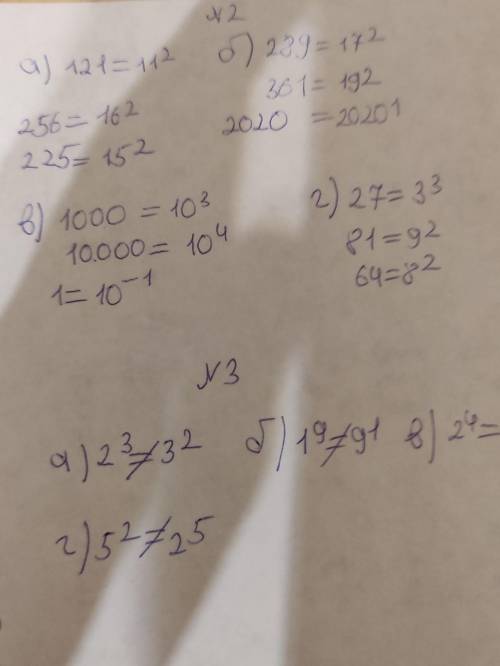 N2
а) 121=11²
256=16²
225=15²
б) 289=17²
361=19²
2020=2020¹
в) 1000=10³
10.000=10⁴
1=10⁻¹
г) 27=3³
81=9²
64=8²
N3
а) 2³≠3² б) 1⁹≠9¹ в) 2⁴=
г) 5²≠2⁵